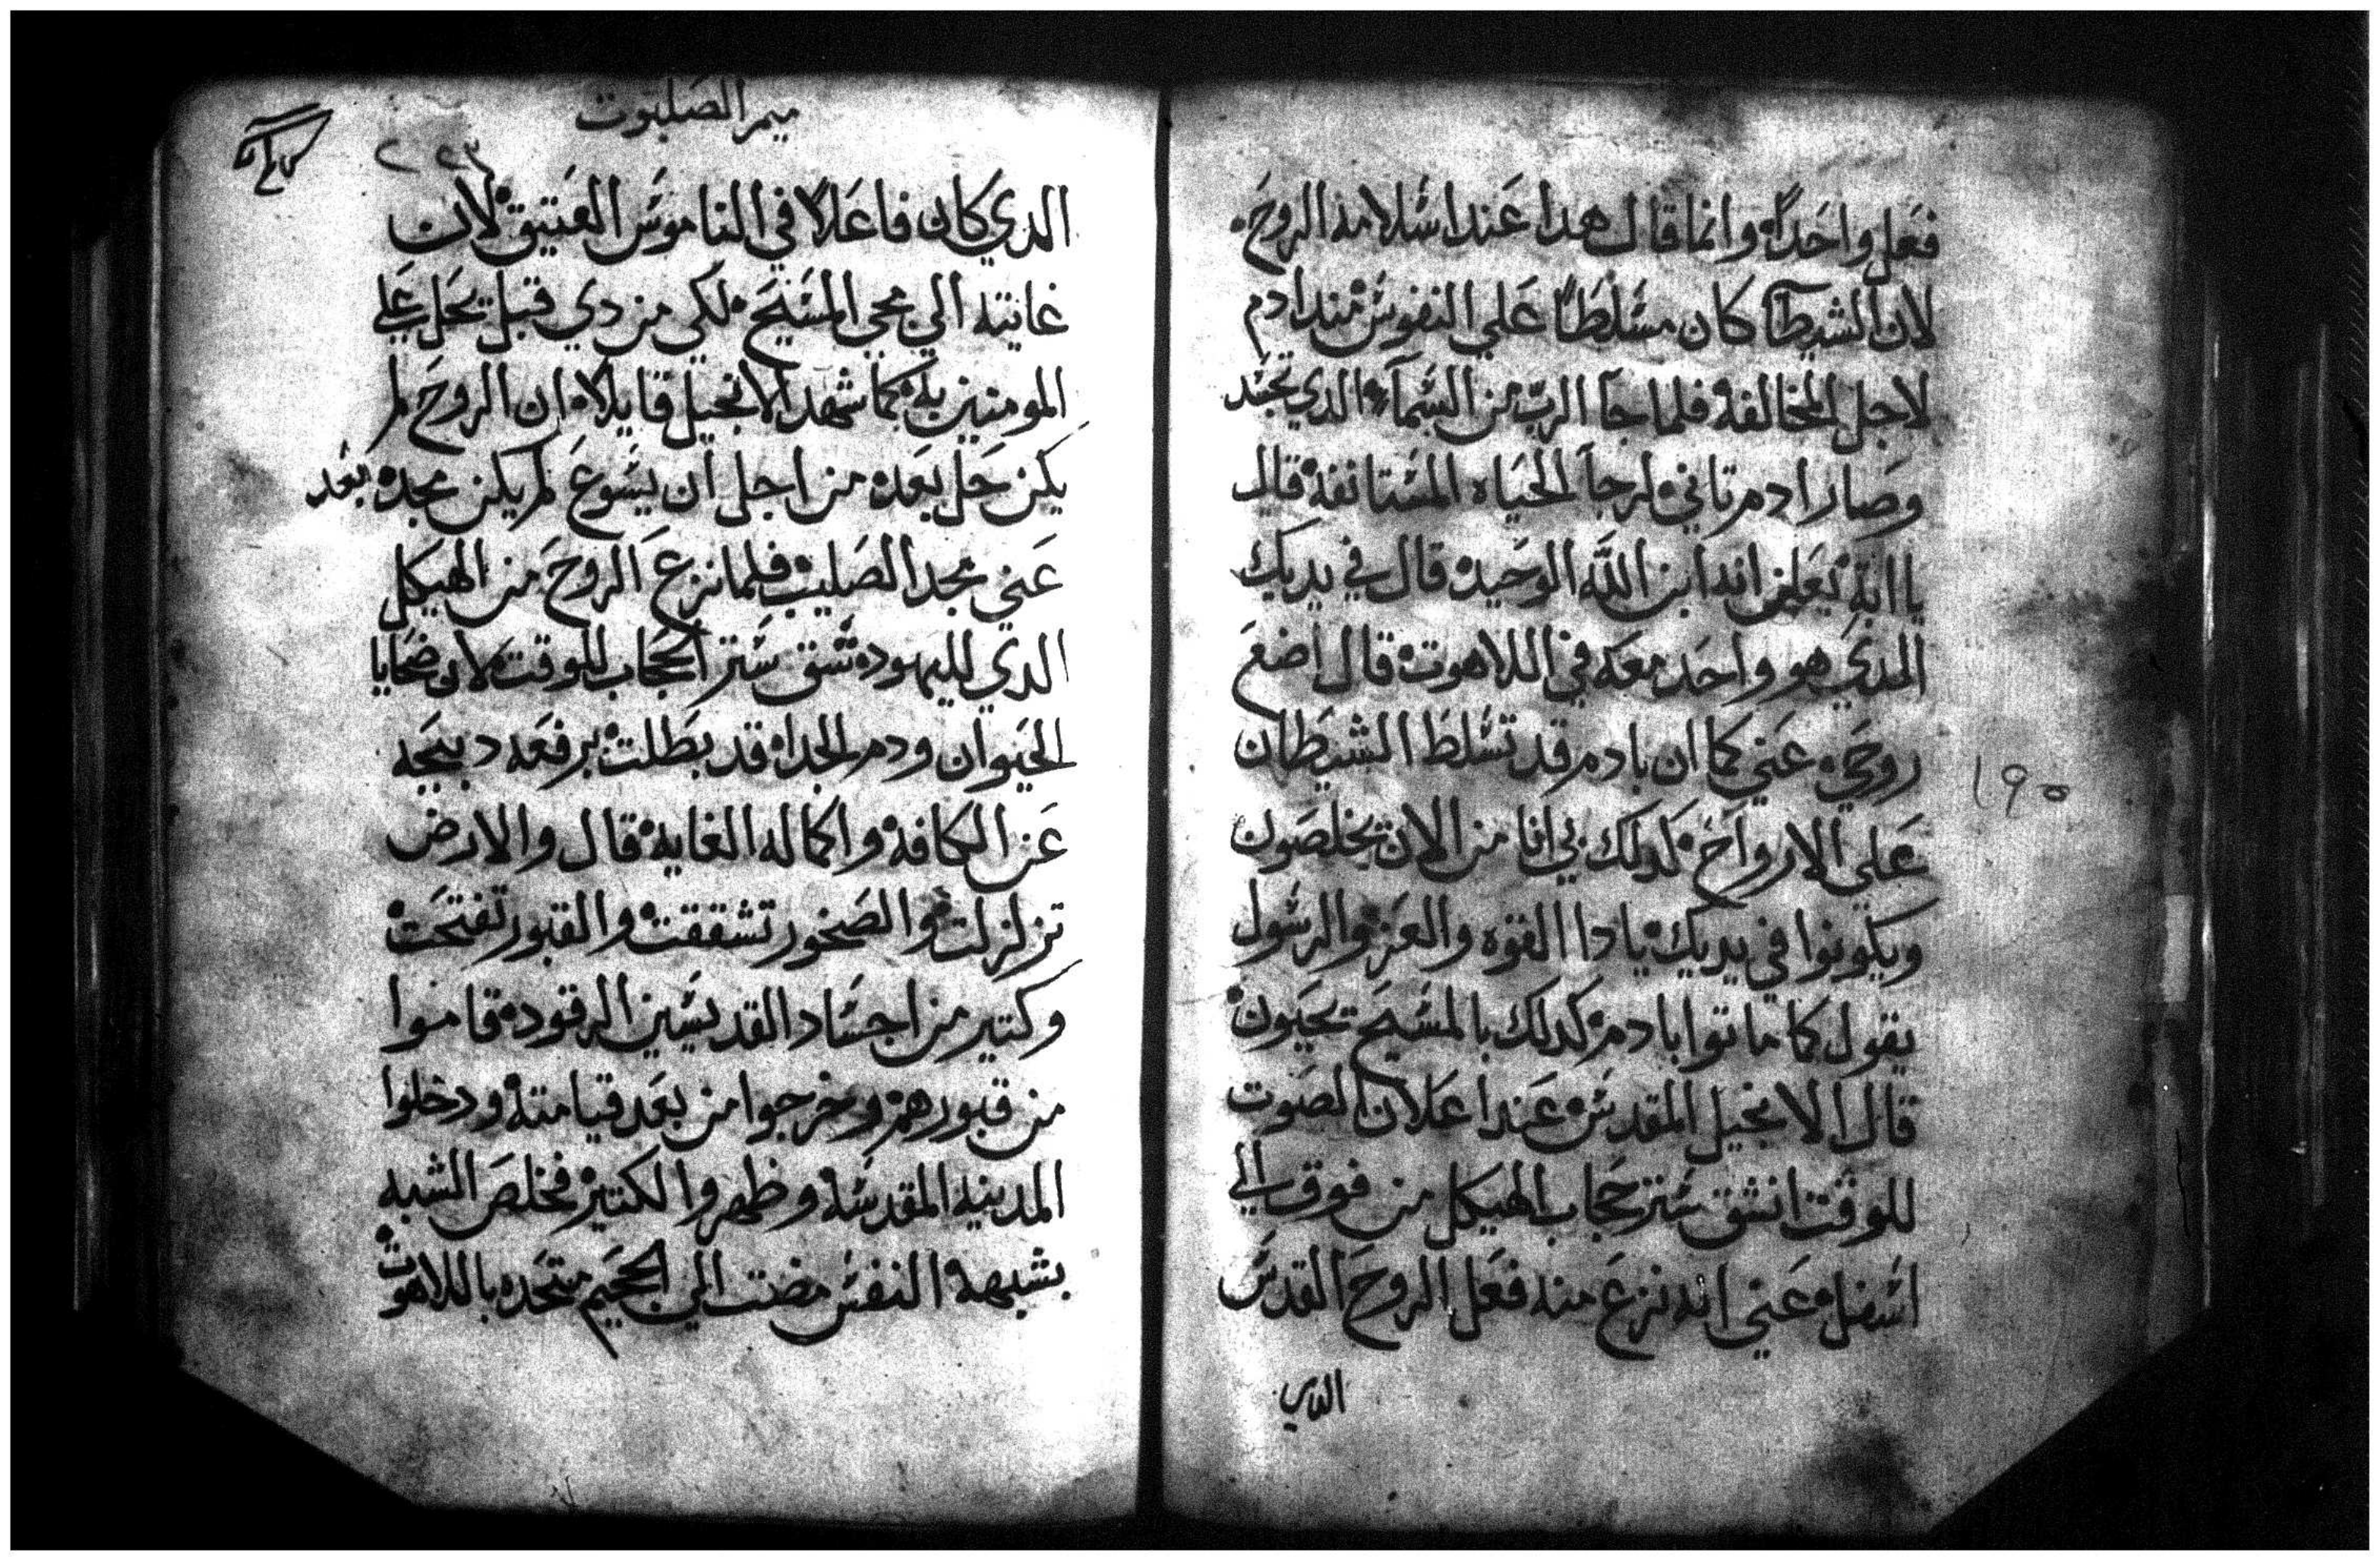 فعل واحداً وانما قال هدا عند اسلامه الروح
لان الشيطان كان مسلطاً علي النفوس مند ادم
لاجل المخالفه فلما جا الرب من السمآء الدي تجسد
وصار ادم تاني لرجا الحياه المستانفه قال
يا ابة يعلن انه ابن الله الوحيد قال في يديك
الدي هو واحد معه في اللاهوت قال اضع
روحي عني كما ان بادم قد تسلط الشيطان
علي الارواح كدلك بي انا من الان يخلصون
ويكونوا في يديك يا دا القوه والعز والرسول
يقول كما ماتوا بادم كدلك بالمسيح يحيون
قال الانجيل المقدس عند اعلان الصوت
للوقت انشق ستر حجاب الهيكل من فوق الي
اسفل عني انه نزع منه فعل الروح القدس
الدي
١٩٥
ميمر الصلبوت
٢٢٣
الدي كان فاعلاً في الناموس العتيق لان
غايته الي مجي المسيح لكي من دي قبل يحل علي
المومنين به كما شهد الانجيل قايلا ان الروح لم
يكن حل بعد من اجل ان يسوع لم يكن مجد بعد
عني مجد الصليب فلما نزع الروح من الهيكل
الدي لليهود شق ستر الحجاب للوقت لان ضحايا
الحيوان ودم الجدا قد بطلت برفعه دبيحه
عن الكافه واكماله الغايه قال والارض
تزلزلت والصخور تشققت والقبور تفتحت
وكتير من اجساد القديسين الرقود قاموا
من قبورهم وخرجوا من بعد قيامته ودخلوا
المدينه المقدسه وظهروا لكتير فخلص الشبه
بشبهه النفس مضت الي الجحيم متحده باللاهوت